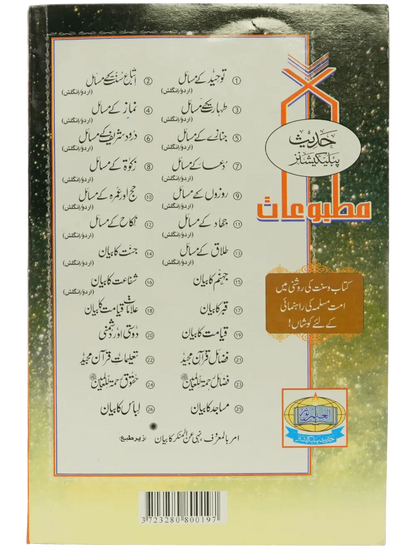 ① توحید کے مسائل (اردو/انگلش) ② اتباع سنت کے مسائل (اردو/انگلش)
③ طہارت کے مسائل ④ نماز کے مسائل (اردو/انگلش)
⑤ جنازے کے مسائل ⑥ درود شریف کے مسائل (اردو/انگلش)
⑦ دعا کے مسائل ⑧ زکوٰۃ کے مسائل
⑨ روزوں کے مسائل ⑩ حج اور عمرہ کے مسائل (اردو/انگلش)
⑪ جہاد کے مسائل ⑫ نکاح کے مسائل (اردو/انگلش)
⑬ طلاق کے مسائل (اردو/انگلش) ⑭ جنت کا بیان
⑮ جہنم کا بیان ⑯ شفاعت کا بیان
⑰ قبر کا بیان ⑱ علامات قیامت کا بیان
⑲ قیامت کا بیان ⑳ دوستی اور دشمنی
㉑ فضائل قرآن مجید ㉒ تعلیمات قرآن مجید
㉓ فضائل رحمۃ للعالمین ㉔ حقوق رحمۃ للعالمین
㉕ مساجد کا بیان ㉖ لباس کا بیان
امر بالمعروف نہی عن المنکر کا بیان (زیر طبع)
حدیث
پبلیکیشنز
مطبوعات
کتاب و سنت کی روشنی میں
امت مسلمہ کی راہنمائی
کے لئے کوشاں!
3 723280 800197